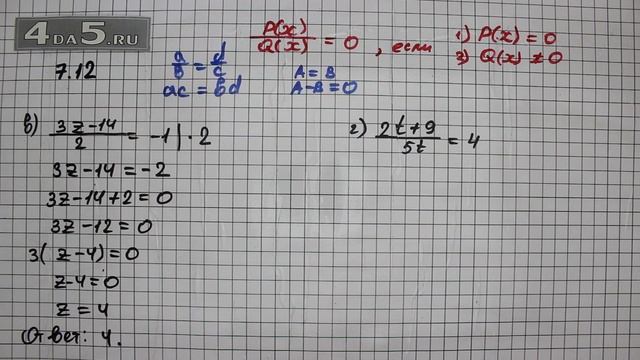 4DA5.RU
7.12
a/b = d/c
ac = bd
A = B
A-B=0
P(x)/Q(x) = 0, если 1) P(x) = 0
3) Q(x) ≠ 0
в) (3z-14)/2 = -1 | · 2
3z-14 = -2
3z-14+2 = 0
3z-12 = 0
3(z-4) = 0
z-4 = 0
z = 4
Ответ: 4.
г) (2t+9)/5t = 4